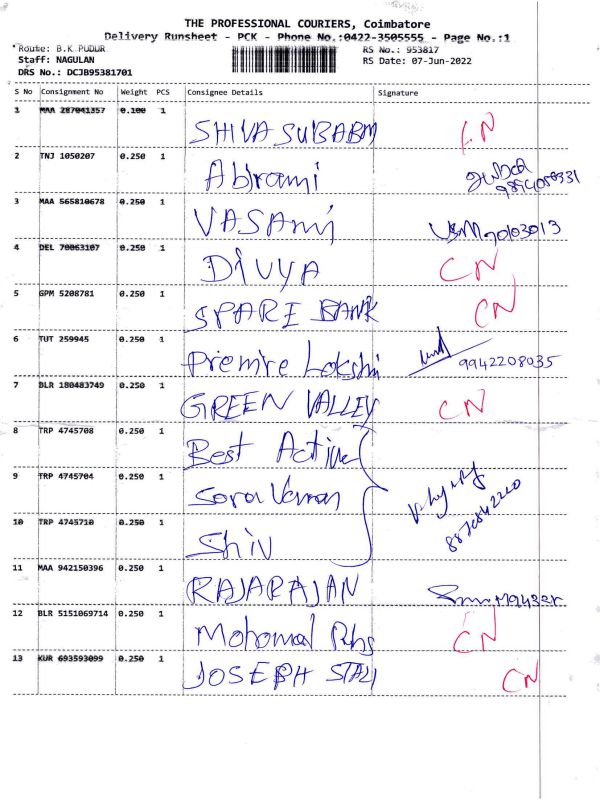 THE PROFESSIONAL COURIERS, Coimbatore
Delivery Runsheet - PCK - Phone No.:0422-3505555 - Page No.:1
Route: B.K.PUDUR RS No.: 953817
Staff: NAGULAN RS Date: 07-Jun-2022
DRS No.: DCJB95381701
S No Consignment No Weight PCS Consignee Details Signature
1 MAA 287041357 0.100 1 SHIVA SUBABM
2 TNJ 1050207 0.250 1 Abirami 9894058331
3 MAA 565810678 0.250 1 VASAmj
4 DEL 70063107 0.250 1 DIVYA CN
5 GPM 5208781 0.250 1 SPARE BANK CN
6 TUT 259945 0.250 1 Premire Lakshmi 9942208035
7 BLR 180483749 0.250 1 GREEN VALLEY CN
8 TRP 4745708 0.250 1 Best Active
9 TRP 4745704 0.250 1 Saravanan
10 TRP 4745710 0.250 1 Shiv
11 MAA 942150396 0.250 1 RAJARAJAN
12 BLR 5151069714 0.250 1 CN
13 KUR 693593099 0.250 1 JOSEPH STALI CN